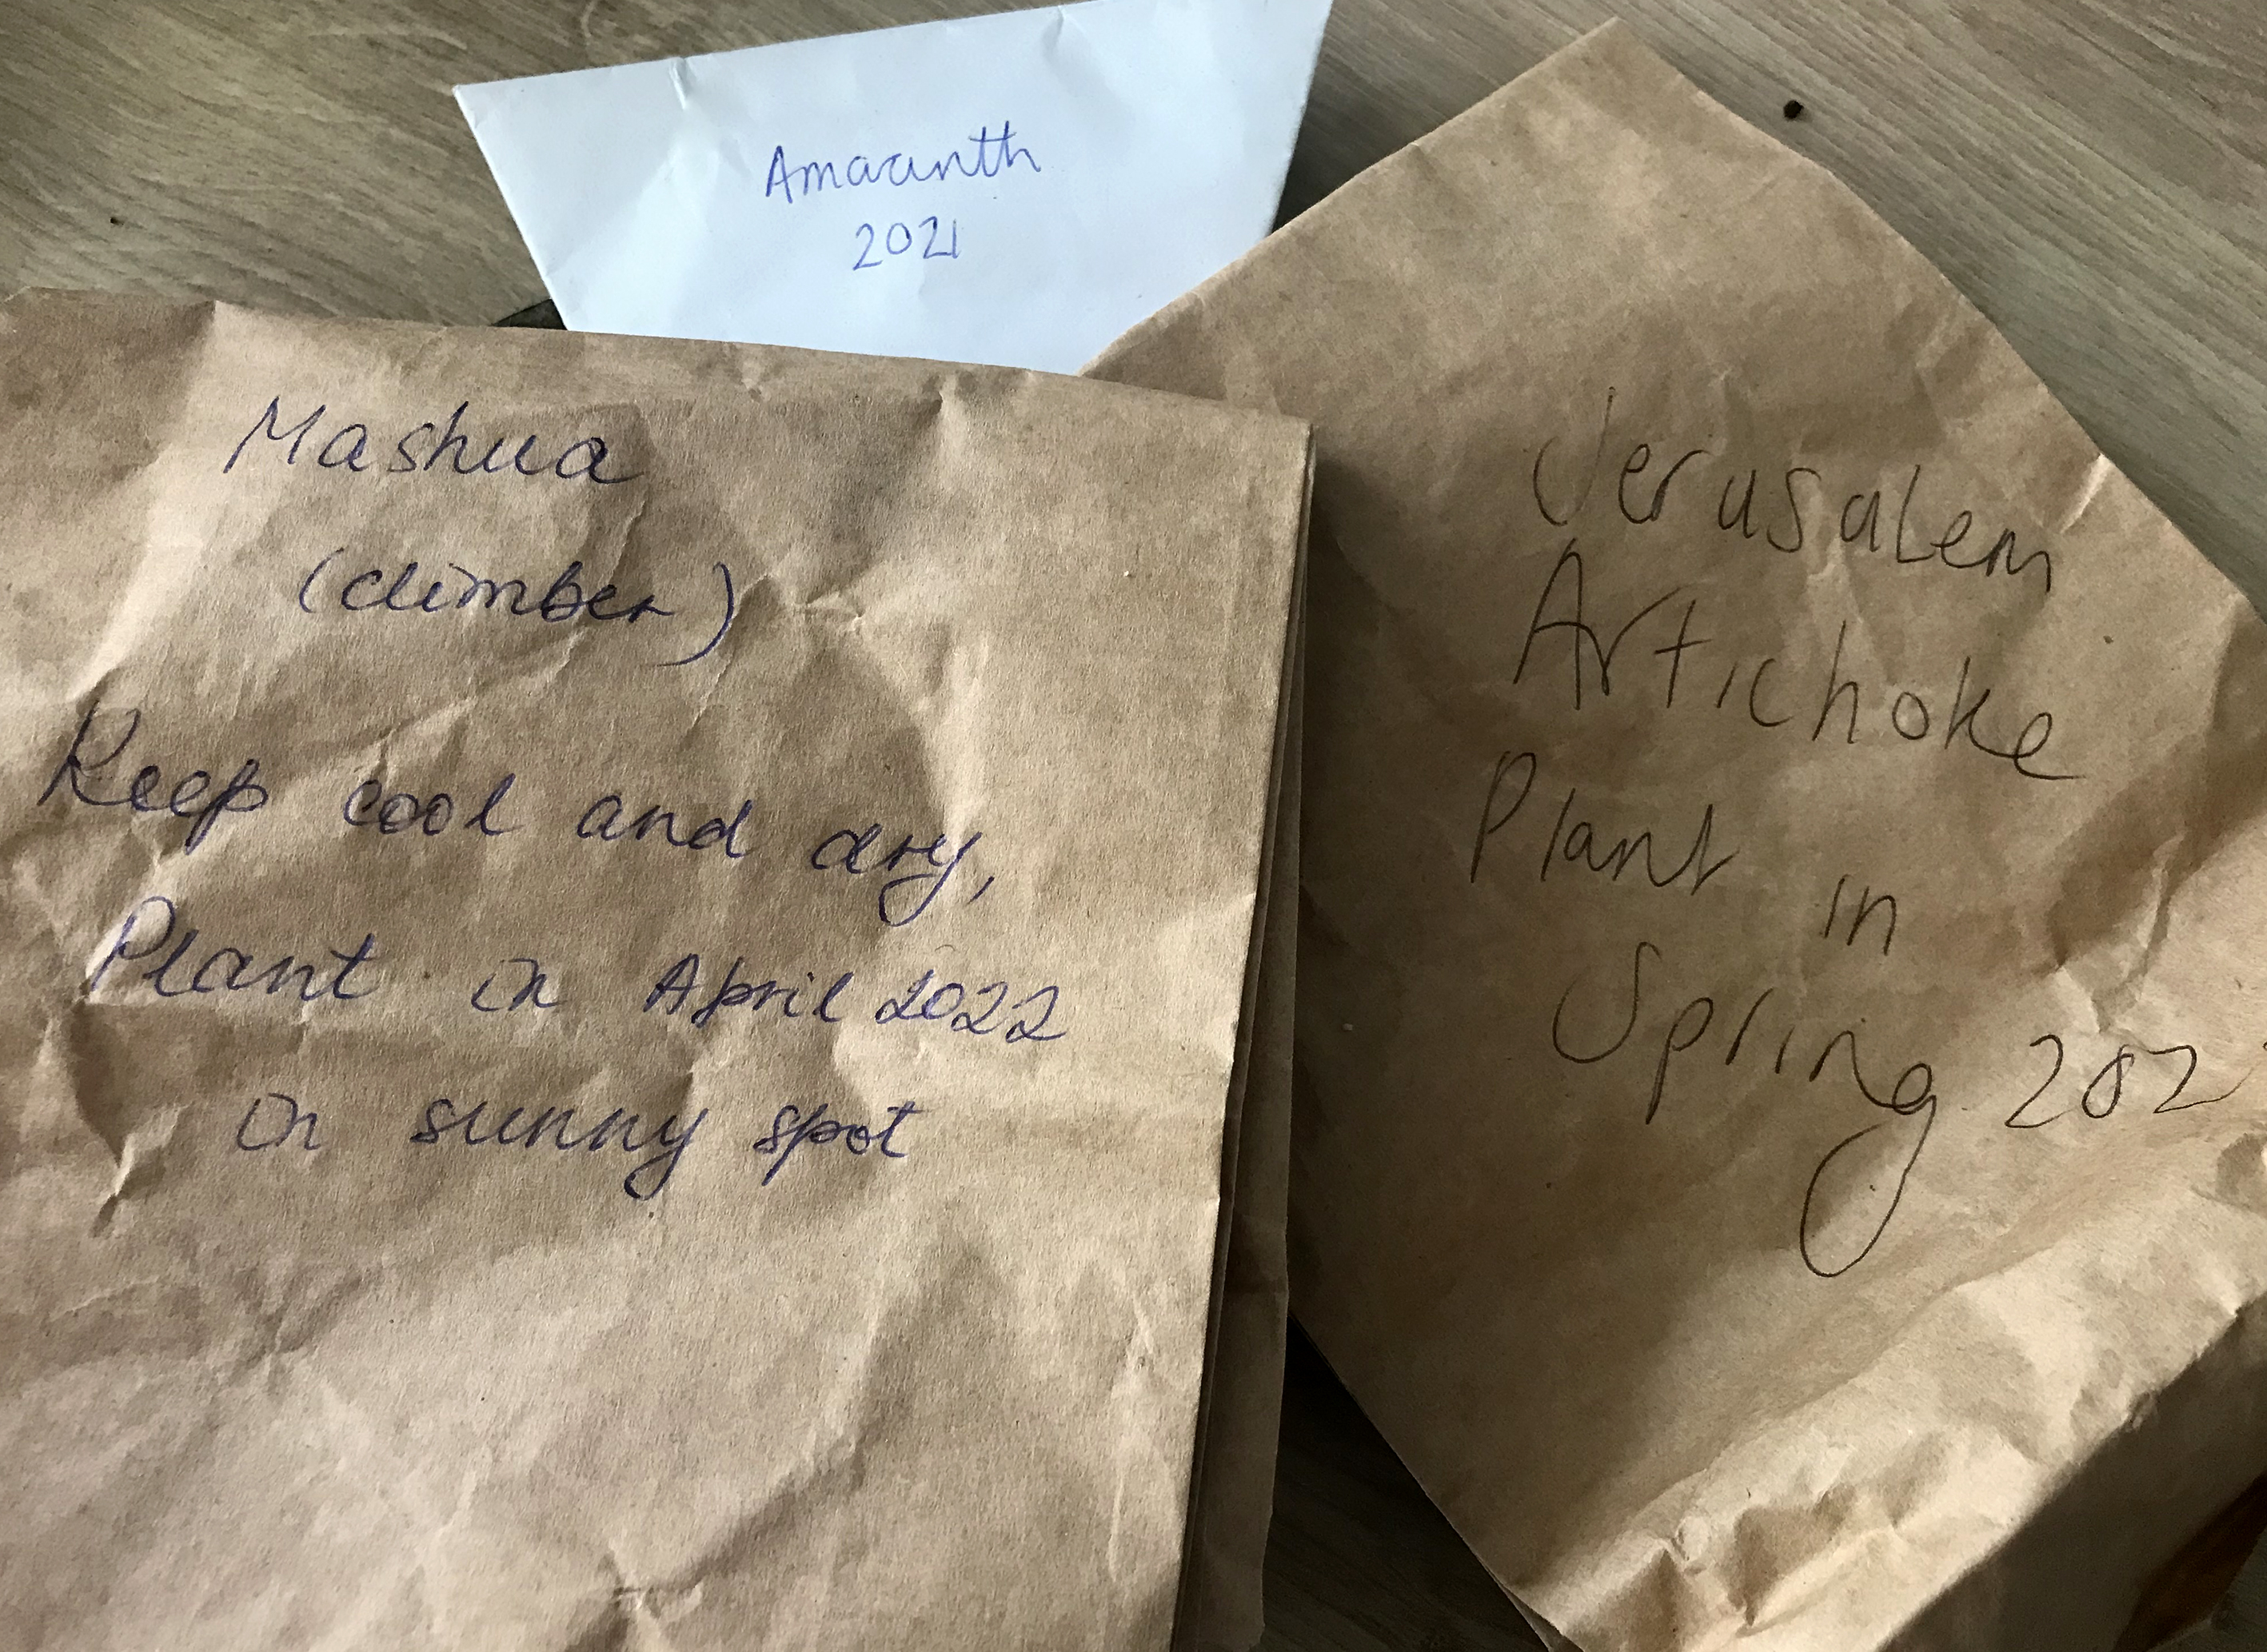 Amaranth
2021
Mashua
(climber)
Keep cool and dry,
Plant in April 2022
in sunny spot
Jerusalem
Artichoke
Plant in
Spring